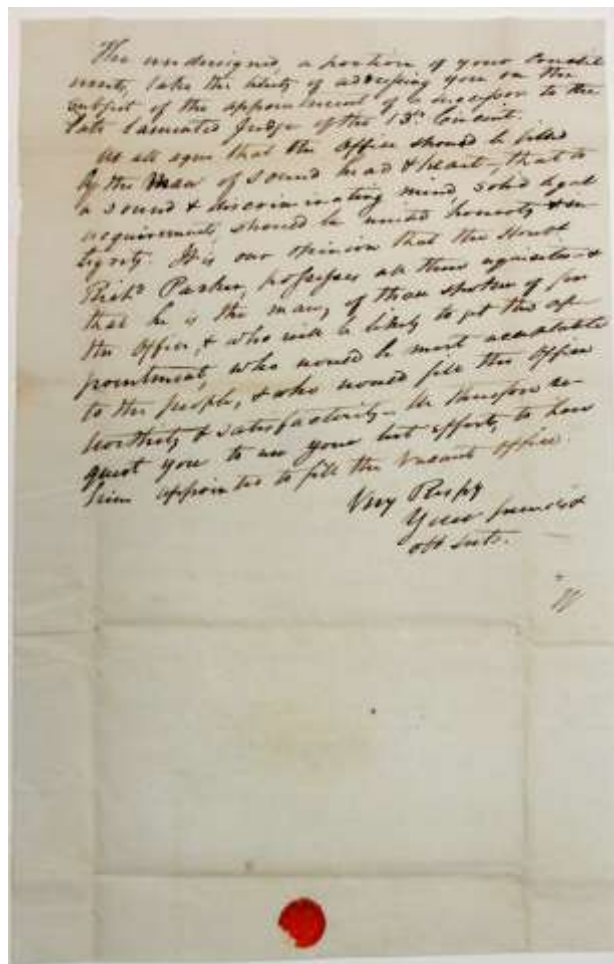 The undersigned, a portion of your Constit
uents, take the liberty of addressing you on the
subject of the appointment of a successor to the
late lamented Judge of the 13th Circuit.
We all agree that the office should be filled
by the Man of sound head & heart, that to
a sound & discriminating mind, solid legal
acquirements, should be united honesty & in
tegrity. It is our opinion that the Honble
Richd Parker, possesses all these requisites &
that he is the man, of those spoken of for
the office, & who will be likely to get the ap-
pointment, who would be most acceptable
to the people, & who would fill the office
worthily & satisfactorily. We therefore re-
quest you to use your best efforts, to have
him appointed to fill the vacant office.
Very Respy
Your friends &
obt svts.